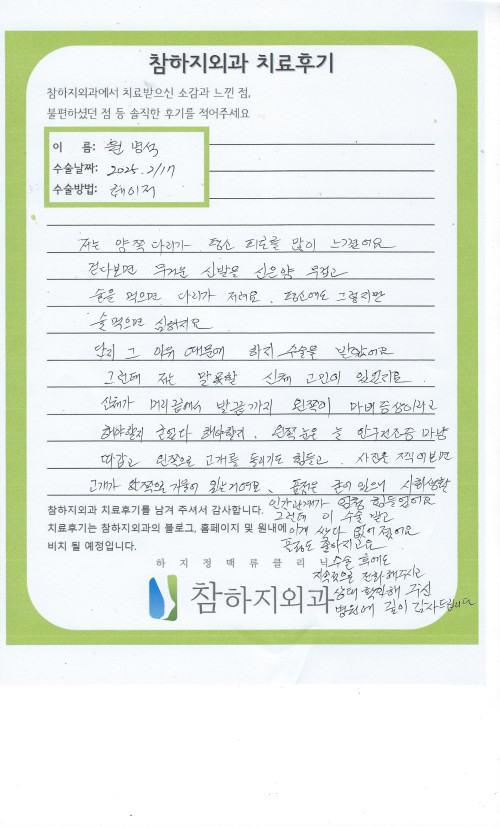 참하지외과 치료후기
참하지외과에서 치료받으신 소감과 느낀 점,
불편하셨던 점 등 솔직한 후기를 적어주세요
이 름: 병석
수술날짜: 2025. 2/17
수술방법: 레이저
저는 양쪽 다리가 평소 피로를 많이 느꼈어요
걷다보면 무거운 신발을 신은양 무겁고
술을 먹으면 다리가 저려요. 평소에도 그렇지만
술 먹으면 심하지요
단지 그 이유 때문에 하지 수술을 받았어요
그런데 저는 말못할 신체 고민이 있었지요.
신체가 머리끝에서 발끝까지 왼쪽이 마비증상이라고
해야할지 굳었다 해야할지. 왼쪽 눈은 늘 안구건조증 마냥
따갑고 왼쪽으로 고개를 돌리기도 힘들고. 사진을 찍어보면
고개가 쪽으로 기울어 있는거에요. 표정은 굳어 있으니 사회생활
인간관계가 엄청 힘들었어요
그런데 이 수술 받고
이게 싹다 없어졌어요
표정도 좋아지고요
수술 후에도
지속적으로 전화해주시고
상태 확인해 주신
병원에 깊이 감사드립니다
참하지외과 치료후기를 남겨 주셔서 감사합니다.
치료후기는 참하지외과의 블로그, 홈페이지 및 원내에
비치 될 예정입니다.
하지정맥류클리닉
참하지외과